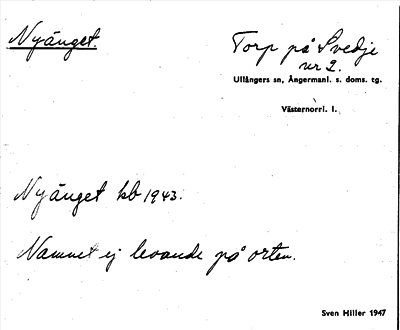 Nyänget.
Torp på Svedje
nr 2.
Ullångers sn, Ångermanl. s. doms. tg.
Västernorrl. l.
Nyänget kb 1943.
Namnet ej levande på orten.
Sven Hiller 1947